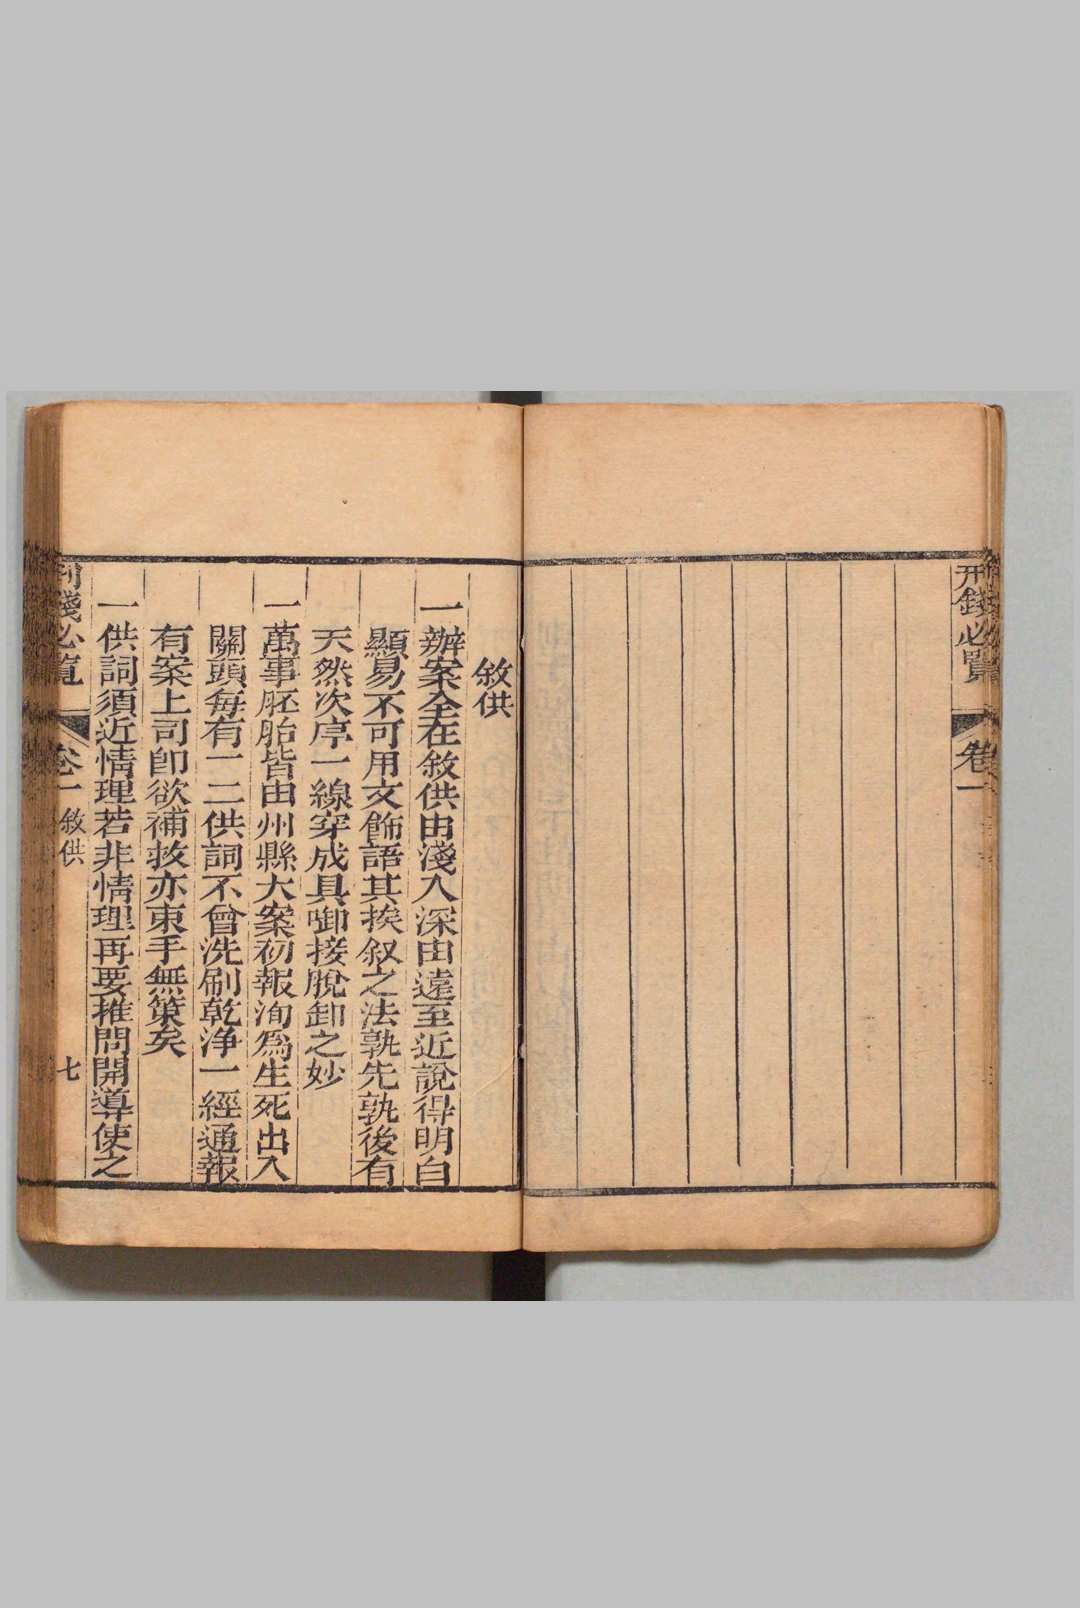 刑錢必覽
卷一
敘供
一辦案全在敘供由淺入深由遠至近說得明白
顯易不可用文飾語其挨叙之法孰先孰後有
天然次序一線穿成具啣接脫卸之妙
一萬事胚胎皆由州縣大案初報洵爲生死出入
關頭每有一二供詞不曾洗刷乾淨一經通報
有案上司卽欲補救亦束手無策矣
一供詞須近情理若非情理再要推問開導使之
刑錢必覽
卷一
敘供
七